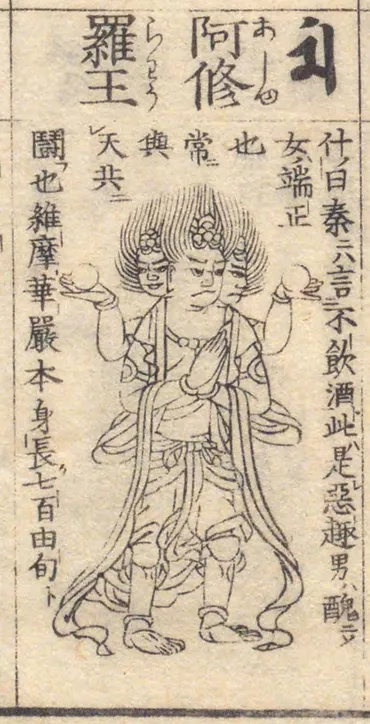 阿修
あしゆ
羅王
らわう
什曰秦ニハ言不飲酒此ハ是レ惡趣男ハ醜ニノ
女端正
也
常ニ
與
天共ニ
鬪フ也維摩華嚴本身長七百由旬ト